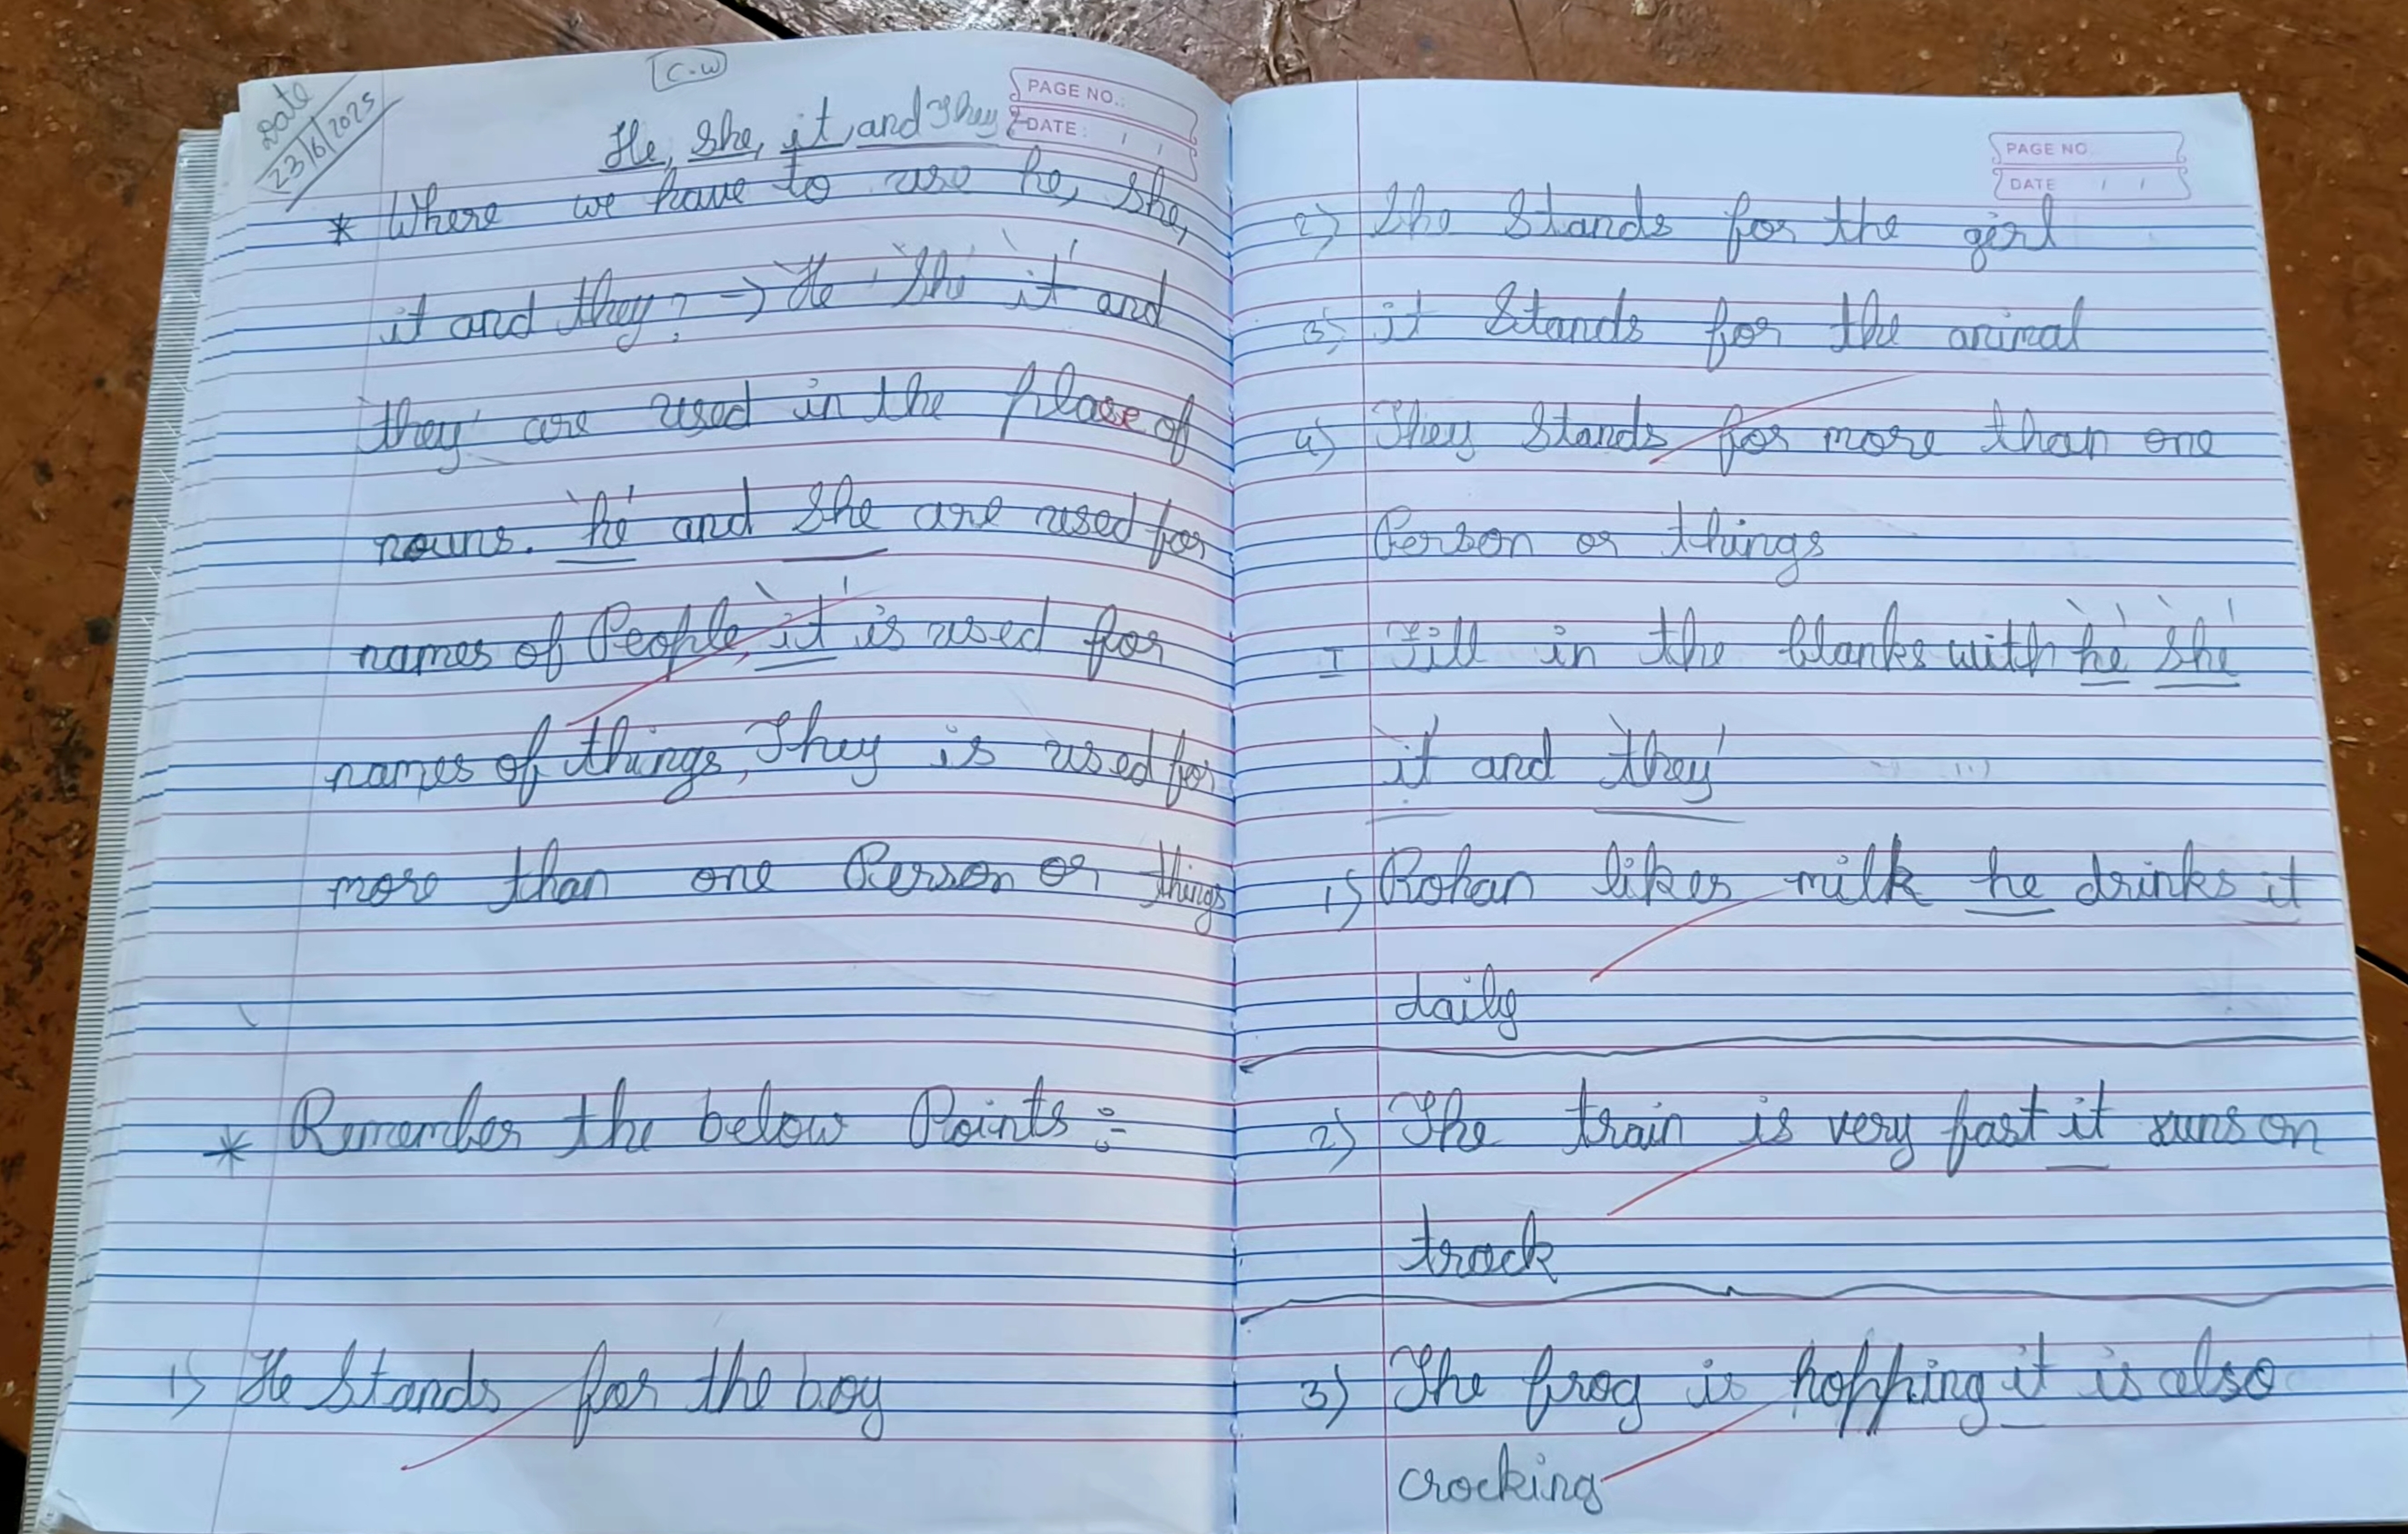 C.W
Date
23/6/2025
PAGE NO.:
DATE: / /
He, She, it, and They
* Where we have to use he, She,
it and they? → 'He' 'She' 'it' and
'they' are used in the place of
nouns. 'he' and She are used for
names of People, 'it' is used for
names of things, They is used for
more than one Person or things
* Remember the below Points :-
1) He Stands for the boy
PAGE NO.
DATE / /
2) She Stands for the girl
3) it Stands for the animal
4) They Stands for more than one
Person or things
I Fill in the blanks with 'he' 'She'
'it' and 'they'
1) Rohan likes milk he drinks it
daily
2) The train is very fast it runs on
track
3) The frog is hopping it is also
crocking